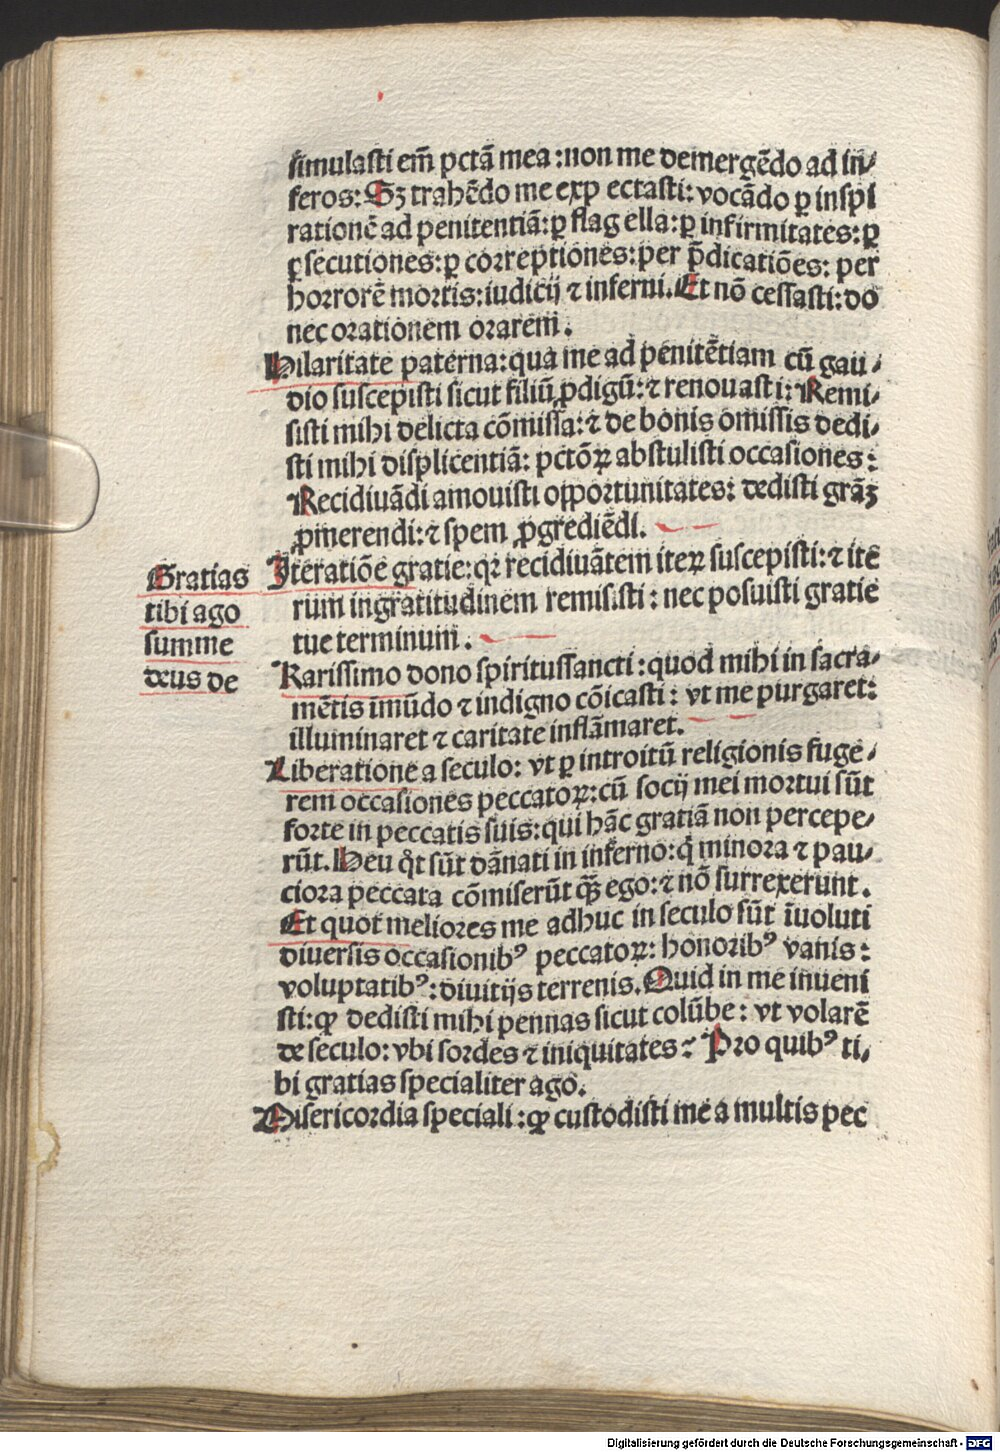 simulasti em̄ pctā mea : non me demergēdo ad in⸗
feros: Sꝫ trahēdo me exp ectasti: vocādo ꝑ inspi
rationē ad penitentiā: ꝑ flag ella: ꝑ infirmitates: ꝑ
ꝑsecutiones: ꝑ correptiones: per p̄dicatiōes: per
horrorē mortis: iudicij ⁊ inferni. Et nō cessasti: do
nec orationem orarem .
Hilaritate paterna: qua me ad penitētiam cū gau⸗
dio suscepisti sicut filiū ꝓdigū: ⁊ renouasti: Remi⸗
sisti mihi delicta cōmissa: ⁊ de bonis omissis dedi⸗
sti mihi displicentiā: pctōꝝ abstulisti occasiones :
Recidiuādi amouisti oꝑportunitates: dedisti grāꝫ
ꝓmerendi: ⁊ spem ꝓgrediēdi.
Gratias
tibi ago
summe
deus de
Iteratiōe gratie: qꝛ recidiuātem iteꝝ suscepisti: ⁊ itē
rum ingratitudinem remisisti : nec posuisti gratie
tue terminum .
Rarissimo dono spiritussancti : quod mihi in sacra⸗
mētis īmūdo ⁊ indigno cōicasti : vt me purgaret:
illuminaret ⁊ caritate inflāmaret.
Liberatione a seculo: vt ꝑ introitū religionis fuge⸗
rem occasiones peccatoꝝ: cū socij mei mortui sūt
forte in peccatis suis: qui hāc gratiā non percepe⸗
rūt. Heu qͦt sūt dānati in inferno: qͥ minora ⁊ pau⸗
ciora peccata cōmiserūt qꝫ̄ ego: ⁊ nō surrexerunt .
Et quot meliores me adhuc in seculo sūt īuoluti
diuersis occasionibꝰ peccatoꝝ: honoribꝰ vanis :
voluptatibꝰ: diuitijs terrenis. Quid in me inueni
sti: ꝙ dedisti mihi pennas sicut colūbe : vt volarē
de seculo: vbi sordes ⁊ iniquitates : Pro quibꝰ ti⸗
bi gratias specialiter ago.
Misericordia speciali: ꝙ custodisti me a multis pec
Digitalisierung gefördert durch die Deutsche Forschungsgemeinschaft - DFG